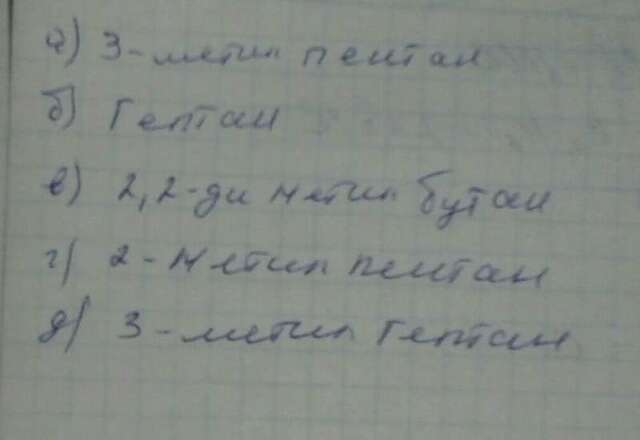 а) 3-метил пентан
б) Гептан
в) 2,2-ди метил бутан
г) 2-метил пентан
д) 3-метил Гептан